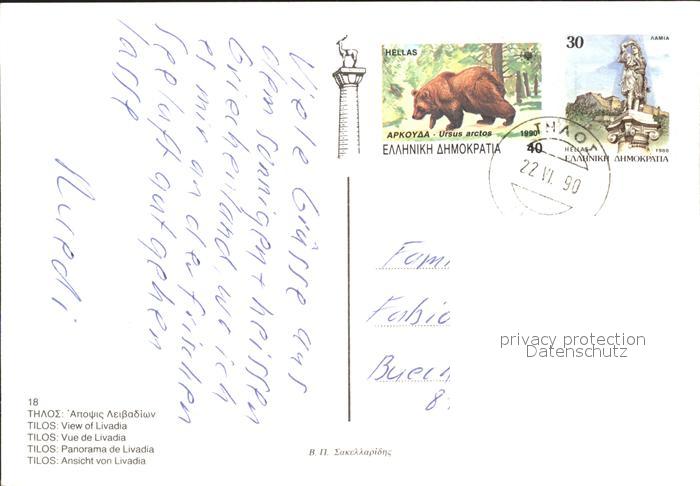 Viele Grüsse aus
dem sonnigen + heissen
Griechenland, wo ich
es mir an der frischen
Seeluft gutgehen
lasse
Ruedi
HELLAS
ΑΡΚΟΥΔΑ - Ursus arctos 1990
ΕΛΛΗΝΙΚΗ ΔΗΜΟΚΡΑΤΙΑ 40
30 ΛΑΜΙΑ
HELLAS 1988
ΕΛΛΗΝΙΚΗ ΔΗΜΟΚΡΑΤΙΑ
ΤΗΛΟΣ
22 VI 90
Fami
Fabio
8
privacy protection
Datenschutz
18
ΤΗΛΟΣ: Ἄποψις Λειβαδίων
TILOS: View of Livadia
TILOS: Vue de Livadia
TILOS: Panorama de Livadia
TILOS: Ansicht von Livadia
Β. Π. Σακελλαρίδης